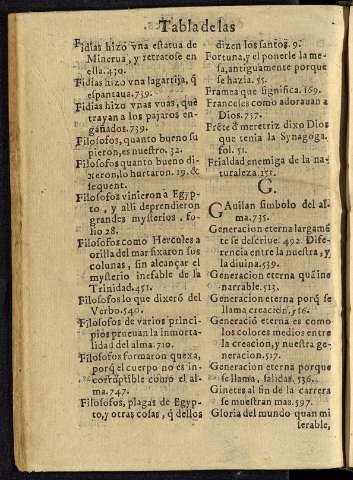 Tabla de las
Fidias hizo vna estatua de
Minerua, y retratose en
ella. 430.
Fidias hizo vna lagartija, q̃
espantaua. 739.
Fidias hizo vnas vuas, quẽ
trayan a los pajaros en-
gañados. 739.
Filosofos, quanto bueno su
pieron, es nuestro. 32.
Filosofos quanto bueno di-
xeron, lo hurtaron. 19. &
sequent.
Filosofos vinieron a Egyp
to, y alli deprendieron
grandes mysterios. fo-
lio 28.
Filosofos como Hercules a
orilla del mar fixaron sus
colunas, sin alcançar el
mysterio inefable de la
Trinidad. 451.
Filosofos lo que dixerõ del
Verbo. 540.
Filosofos de varios princi-
pios prueuan la inmorta-
lidad del alma. 710.
Filosofos formaron quexa,
porq̃ el cuerpo no es in-
corruptible como el al-
ma. 747.
Filosofos, plagas de Egyp-
to, y otras cosas, q̃ dellos
dizen los santos. 9.
Fortuna, y el ponerle la me-
sa, antiguamente porque
se hazia. 55.
Framea que significa. 169.
Franceses como adorauan a
Dios. 737.
Frẽte d̃ meretriz dixo Dios
que tenia la Synagoga.
fol. 51.
Frialdad enemiga de la na-
turaleza. 151.
G.
Gauilan simbolo del al-
ma. 735.
Generacion eterna largamẽ
te se descriue. 492. Dife-
rencia entre la nuestra, y
la diuina. 539.
Generacion eterna quã ine
narrable. 513.
Generacion eterna porq̃ se
llama creacion. 516.
Generaciõ eterna es como
los colores medios entre
la creacion, y nuestra ge-
neracion. 517.
Generacion eterna porque
se llama, salidas. 536.
Ginetes al fin de la carrera
se muestran mas. 597.
Gloria del mundo quan mi
serable,